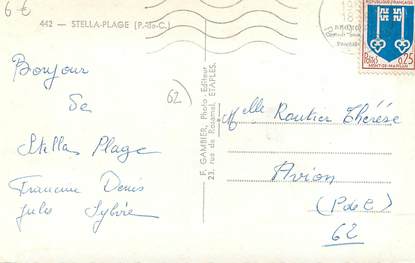 6 €
442 — STELLA-PLAGE (P.-de-C.)
RÉPUBLIQUE FRANÇAISE
Postes 0,25
MONT-DE-MARSAN
Bonjour
De
Stella Plage
Francine Denis
Jules Sylvie
62
F. GAMBIER, Photo-Editeur
23, rue de Rosamel, ETAPLES.
Melle Routier Thérèse
Avion
(P de C)
62